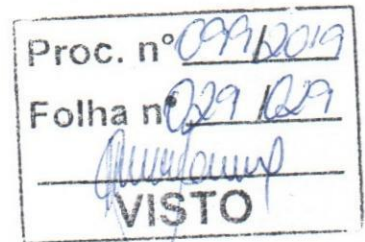 Proc. nº 099/2019
Folha nº 029/029
VISTO